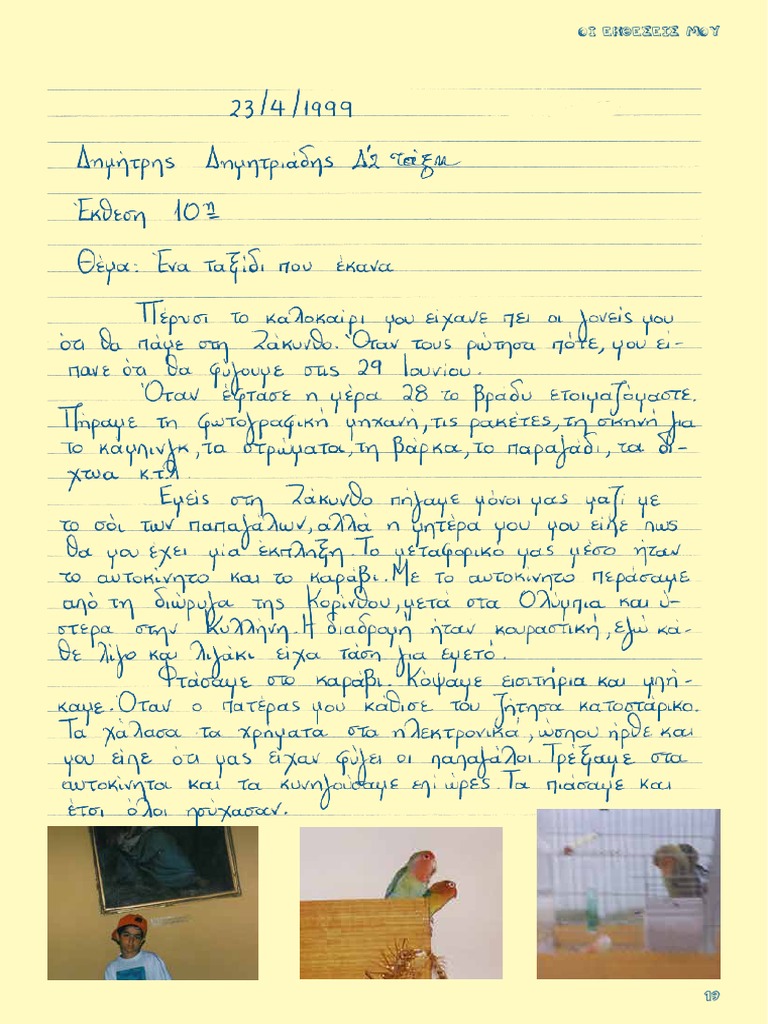 ΟΙ ΕΚΘΕΣΕΙΣ ΜΟΥ
23/4/1999
Δημήτρης Δημητριάδης Δ'2 τάξη
Έκθεση 10η
Θέμα: Ένα ταξίδι που έκανα
Πέρυσι το καλοκαίρι μου είχανε πει οι γονείς μου
ότι θα πάμε στη Ζάκυνθο. Όταν τους ρώτησα πότε, μου εί-
πανε ότι θα φύγουμε στις 29 Ιουνίου.
Όταν έφτασε η μέρα 28 το βράδυ ετοιμαζόμαστε.
Πήραμε τη φωτογραφική μηχανή, τις ρακέτες, τη σκηνή για
το κάμπινγκ, τα στρώματα, τη βάρκα, το παραγάδι, τα δί-
χτυα κ.τ.λ
Εμείς στη Ζάκυνθο πήγαμε μόνοι μας μαζί με
το σόι των παπαγάλων, αλλά η μητέρα μου μου είπε πως
θα μου έχει μία έκπληξη. Το μεταφορικό μας μέσο ήταν
το αυτοκίνητο και το καράβι. Με το αυτοκίνητο περάσαμε
από τη διώρυγα της Κορίνθου, μετά στα Ολύμπια και ύ-
στερα στην Κυλλήνη. Η διαδρομή ήταν κουραστική, εγώ κά-
θε λίγο και λιγάκι είχα τάση για εμετό.
Φτάσαμε στο καράβι. Κόψαμε εισιτήρια και μπή-
καμε. Όταν ο πατέρας μου κάθισε του ζήτησα κατοστάρικο.
Τα χάλασα τα χρήματα στα ηλεκτρονικά, ώσπου ήρθε και
μου είπε ότι μας είχαν φύγει οι παπαγάλοι. Τρέξαμε στα
αυτοκίνητα και τα κυνηγούσαμε επί ώρες. Τα πιάσαμε και
έτσι όλοι ησύχασαν.
19